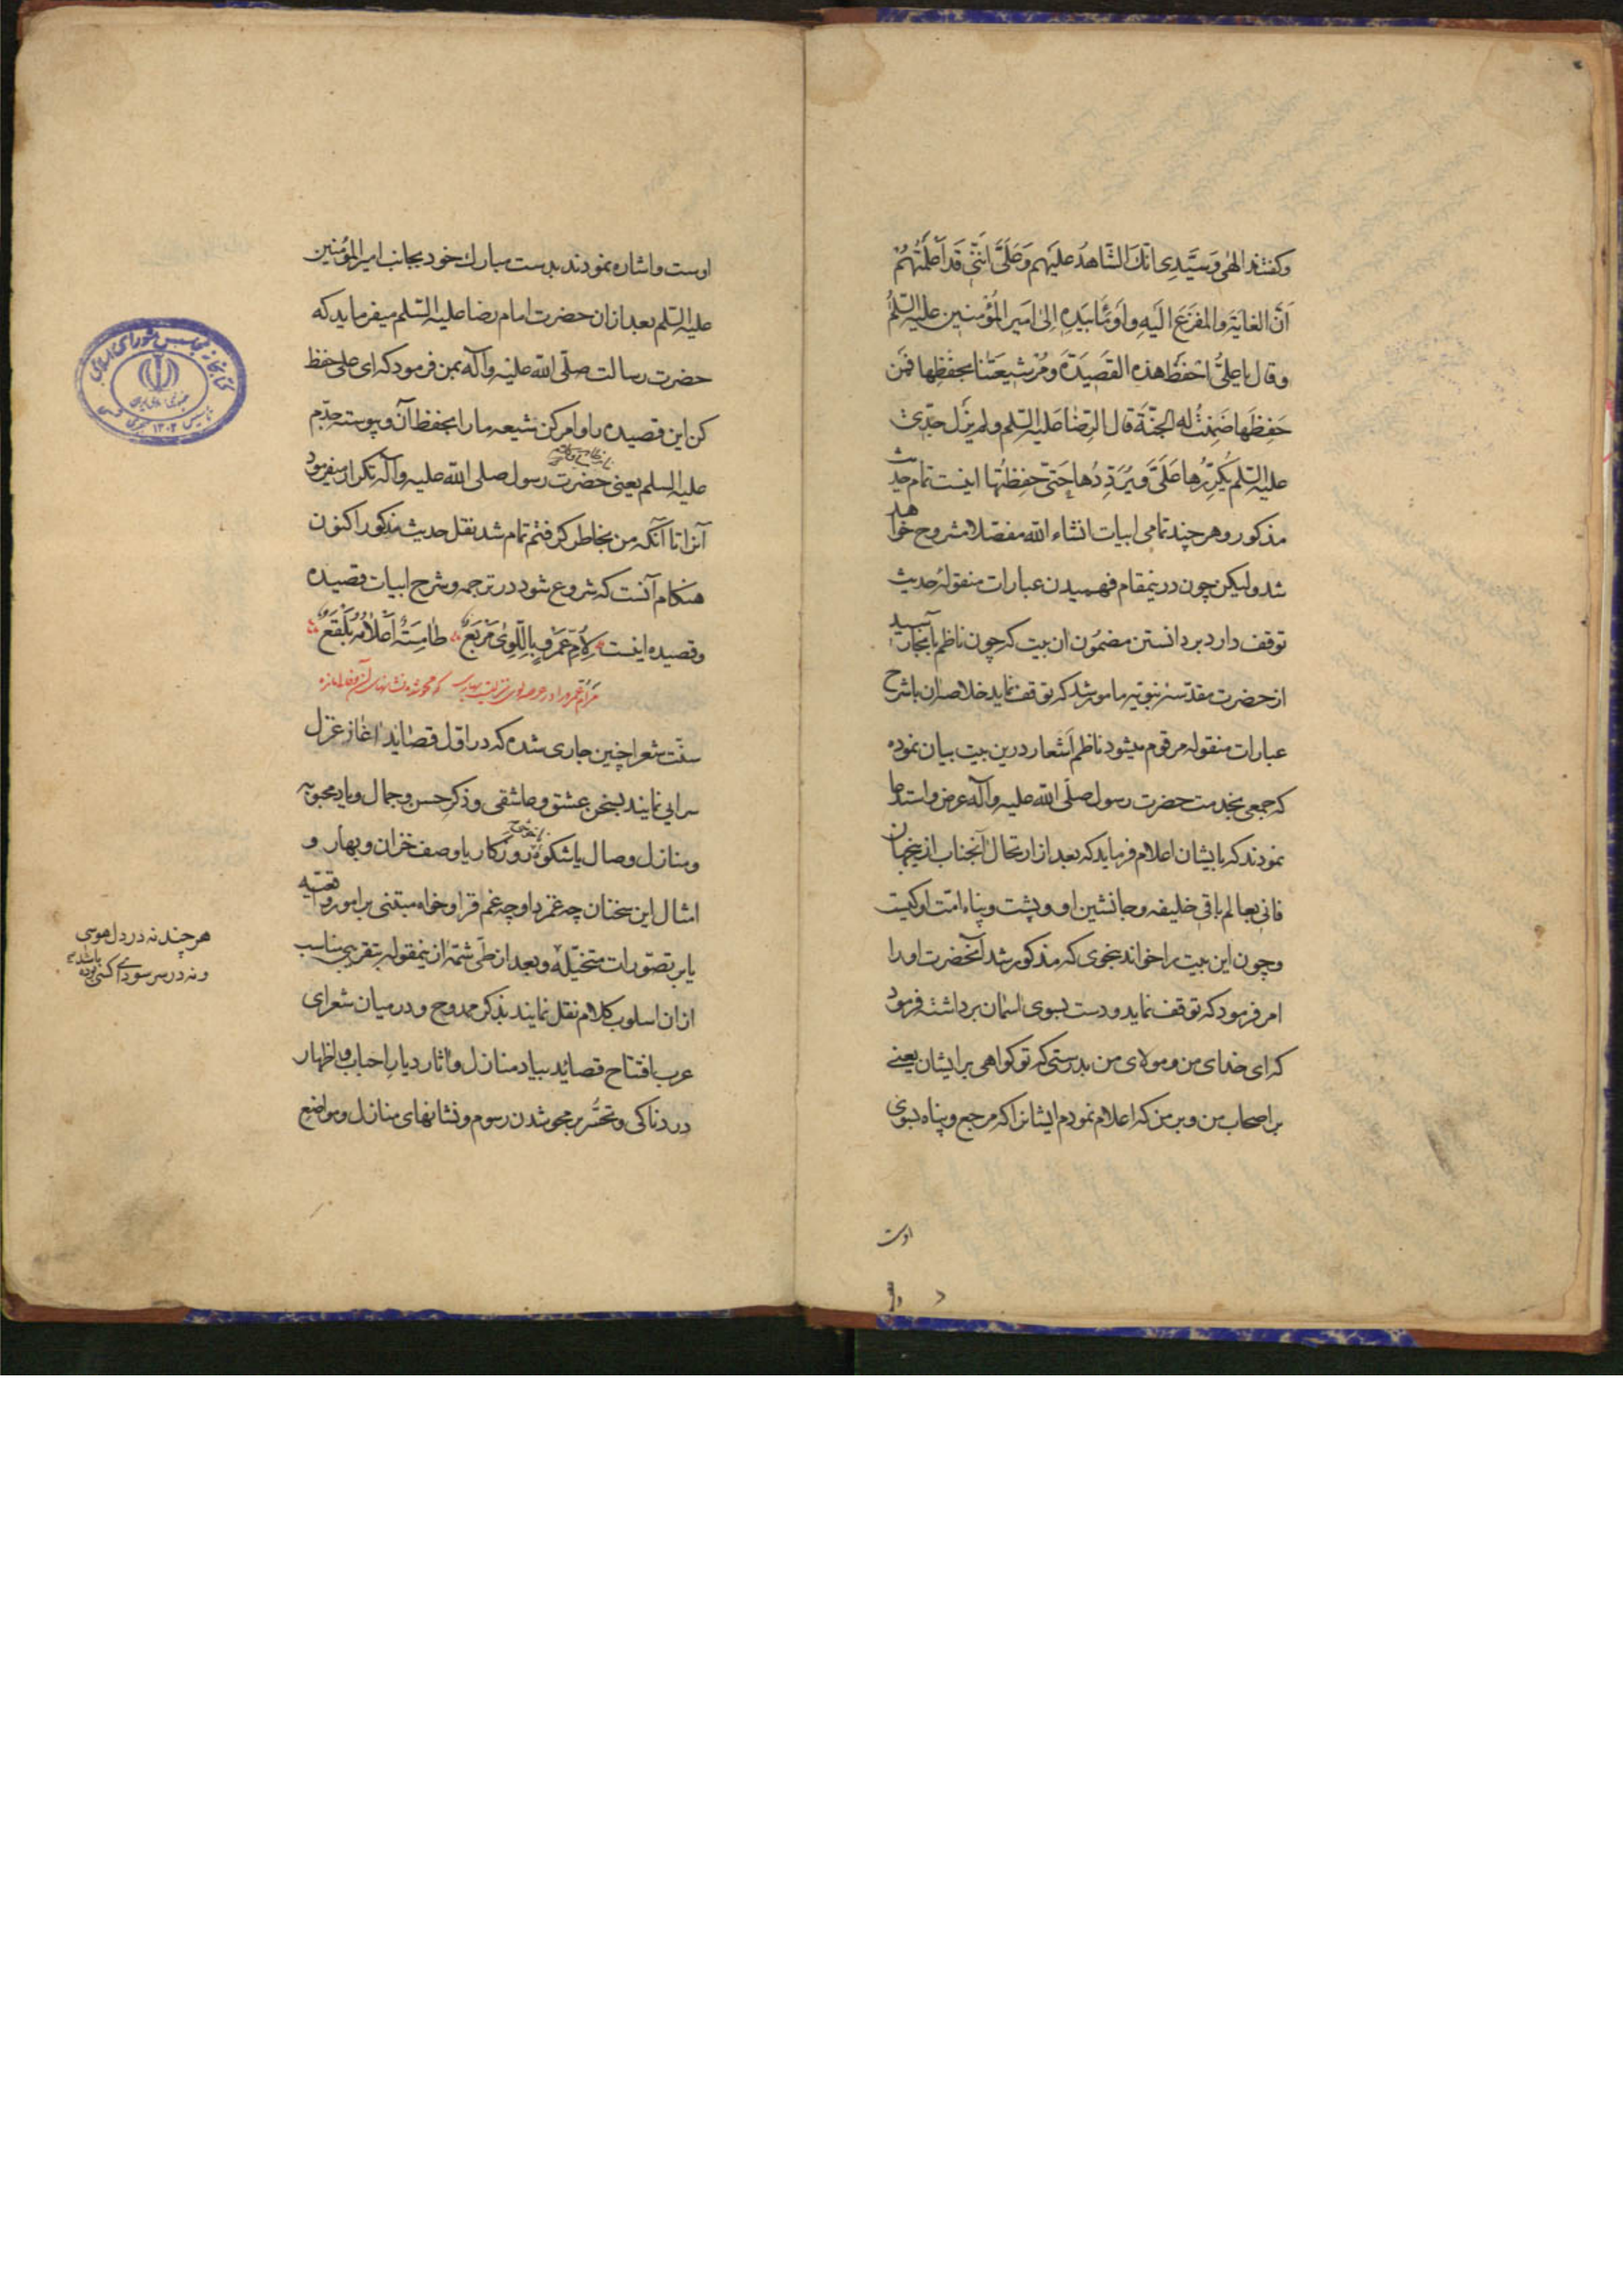 وکفتند الهی وَسَیِّدِی اَنّکَ الشّاهدُ علَیهم وَعَلَیَّ اَنَّنی قَد اَعلَمتُهُمْ
اَنَّ الغایَة والمفزَع الَیهِ واَوْمَأ بیَدِهِ اِلیٰ امَیر المُؤْمنین علیه السّلمُ
وقال یا علیُّ احفَظْ هذه القَصِیَدَة ومُرْ شیعَتَنا بحفظِها فَمَن
حَفِظَها ضَمِنتُ له الجَنَّة قال الرّضا عَلیه السّلم ولم یَزَل جَدّی
علیه السّلم یُکرِّرُها عَلَیَّ وَیُرَدِّدُها حَتیّ حفِظتُها اینست تمام حدیث
مذکور و هرچند تمامی ابیات انشاء الله مفصّلا مشروح خواهد
شد ولیکن چون درینمقام فهمیدن عبارات منقولهٔ حدیث
توقف دارد بردانستن مضمُون ان بیت که چون ناظم بآنجا رسید
از حضرت مقدّسه نبویّه مامور شد که توقف نماید خلاصه ان باشرح
عبارات منقوله مرقوم میشود ناظم اَشعار درین بیت بیان نموده
که جمعی بخدمت حضرت رسول صلّی الله علیه وآله عرض واستدعا
نمودند که بایشان اعلام فرماید که بعد از ارتحال آنجناب ازینجهان
فانی بعالم باقی خلیفه وجانشین او وپشت وپناه امّت او کیست
وچون این بیت را خواند بنحوی که مذکور شد آنحضرت اورا
امر فرمود که توقف نماید ودست بسوی اسمان برداشته فرمود
که ای خدای من ومولای من بدرستی که تو کواهی برایشان یعنی
بر اصحاب من وبرمن که اعلام نمودم ایشانرا که مرجع وپناه بسوی
اوست
اوست واشاره نمودند بدست مبارك خود بجانب امیر المؤمنین
علیه السّلم بعد ازان حضرت امام رضا علیه السّلم میفرماید که
حضرت رسالت صلّی الله علیه وآله بمن فرمود که ای علی حفظ
کن این قصیده را وامر کن شیعه ما را بحفظ آن وپیوسته جدّم
علیه السلم یعنی حضرت رسول صلی الله علیه وآله تکرار میفرمود
آنرا تا آنکه من بخاطر کرفتم تمام شد نقل حدیث مذکور اکنون
هنکام آنست که شروع شود در ترجمه وشرح ابیات قصیده
وقصیده اینست لِاُمِّ عَمْروٍ بِاللِّوَیٰ مَرْبَعٌ طامِسَةٌ اَعْلامُهُ بَلْقَعٌ
سنّت شعرا چنین جاری شده که در اوّل قصٰاید اغاز غزل
سرایی نمایند بسخن عشق وعاشقی وذکر حسن وجمال ویاد محبوبه
ومنازل وصال یا شکوهٔ روزکار یا وصف خزان وبهار و
امثال این سخنان چه غمزدا وچه غم فزا وخواه مبتنی بر امور واقعیّه
یا بر تصوّرات متخیّله وبعد از طیّ شمّهٔ ازینمقوله بتقریبی مناسب
ازان اسلوب کلام نقل نمایند بذکر ممدوح ودرمیان شعرای
عرب افتتاح قصائد بیاد منازل واثار دیار احباب واظهار
دردناکی وتحسّر بر محو شدن رسوم ونشانهای منازل ومواضع
هرچند نه در دل هوسی باشدم
ونه در سر سودای کسی بوده
کتابخانه مجلس شورای اسلامی